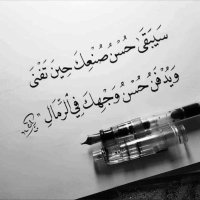 سَيَبْقَىٰ حُسْنُ صُنْعِكَ حِينَ تَفْنَى
وَيُدْفَنُ حُسْنُ وَجْهِكَ فِي الرِّمَالِ